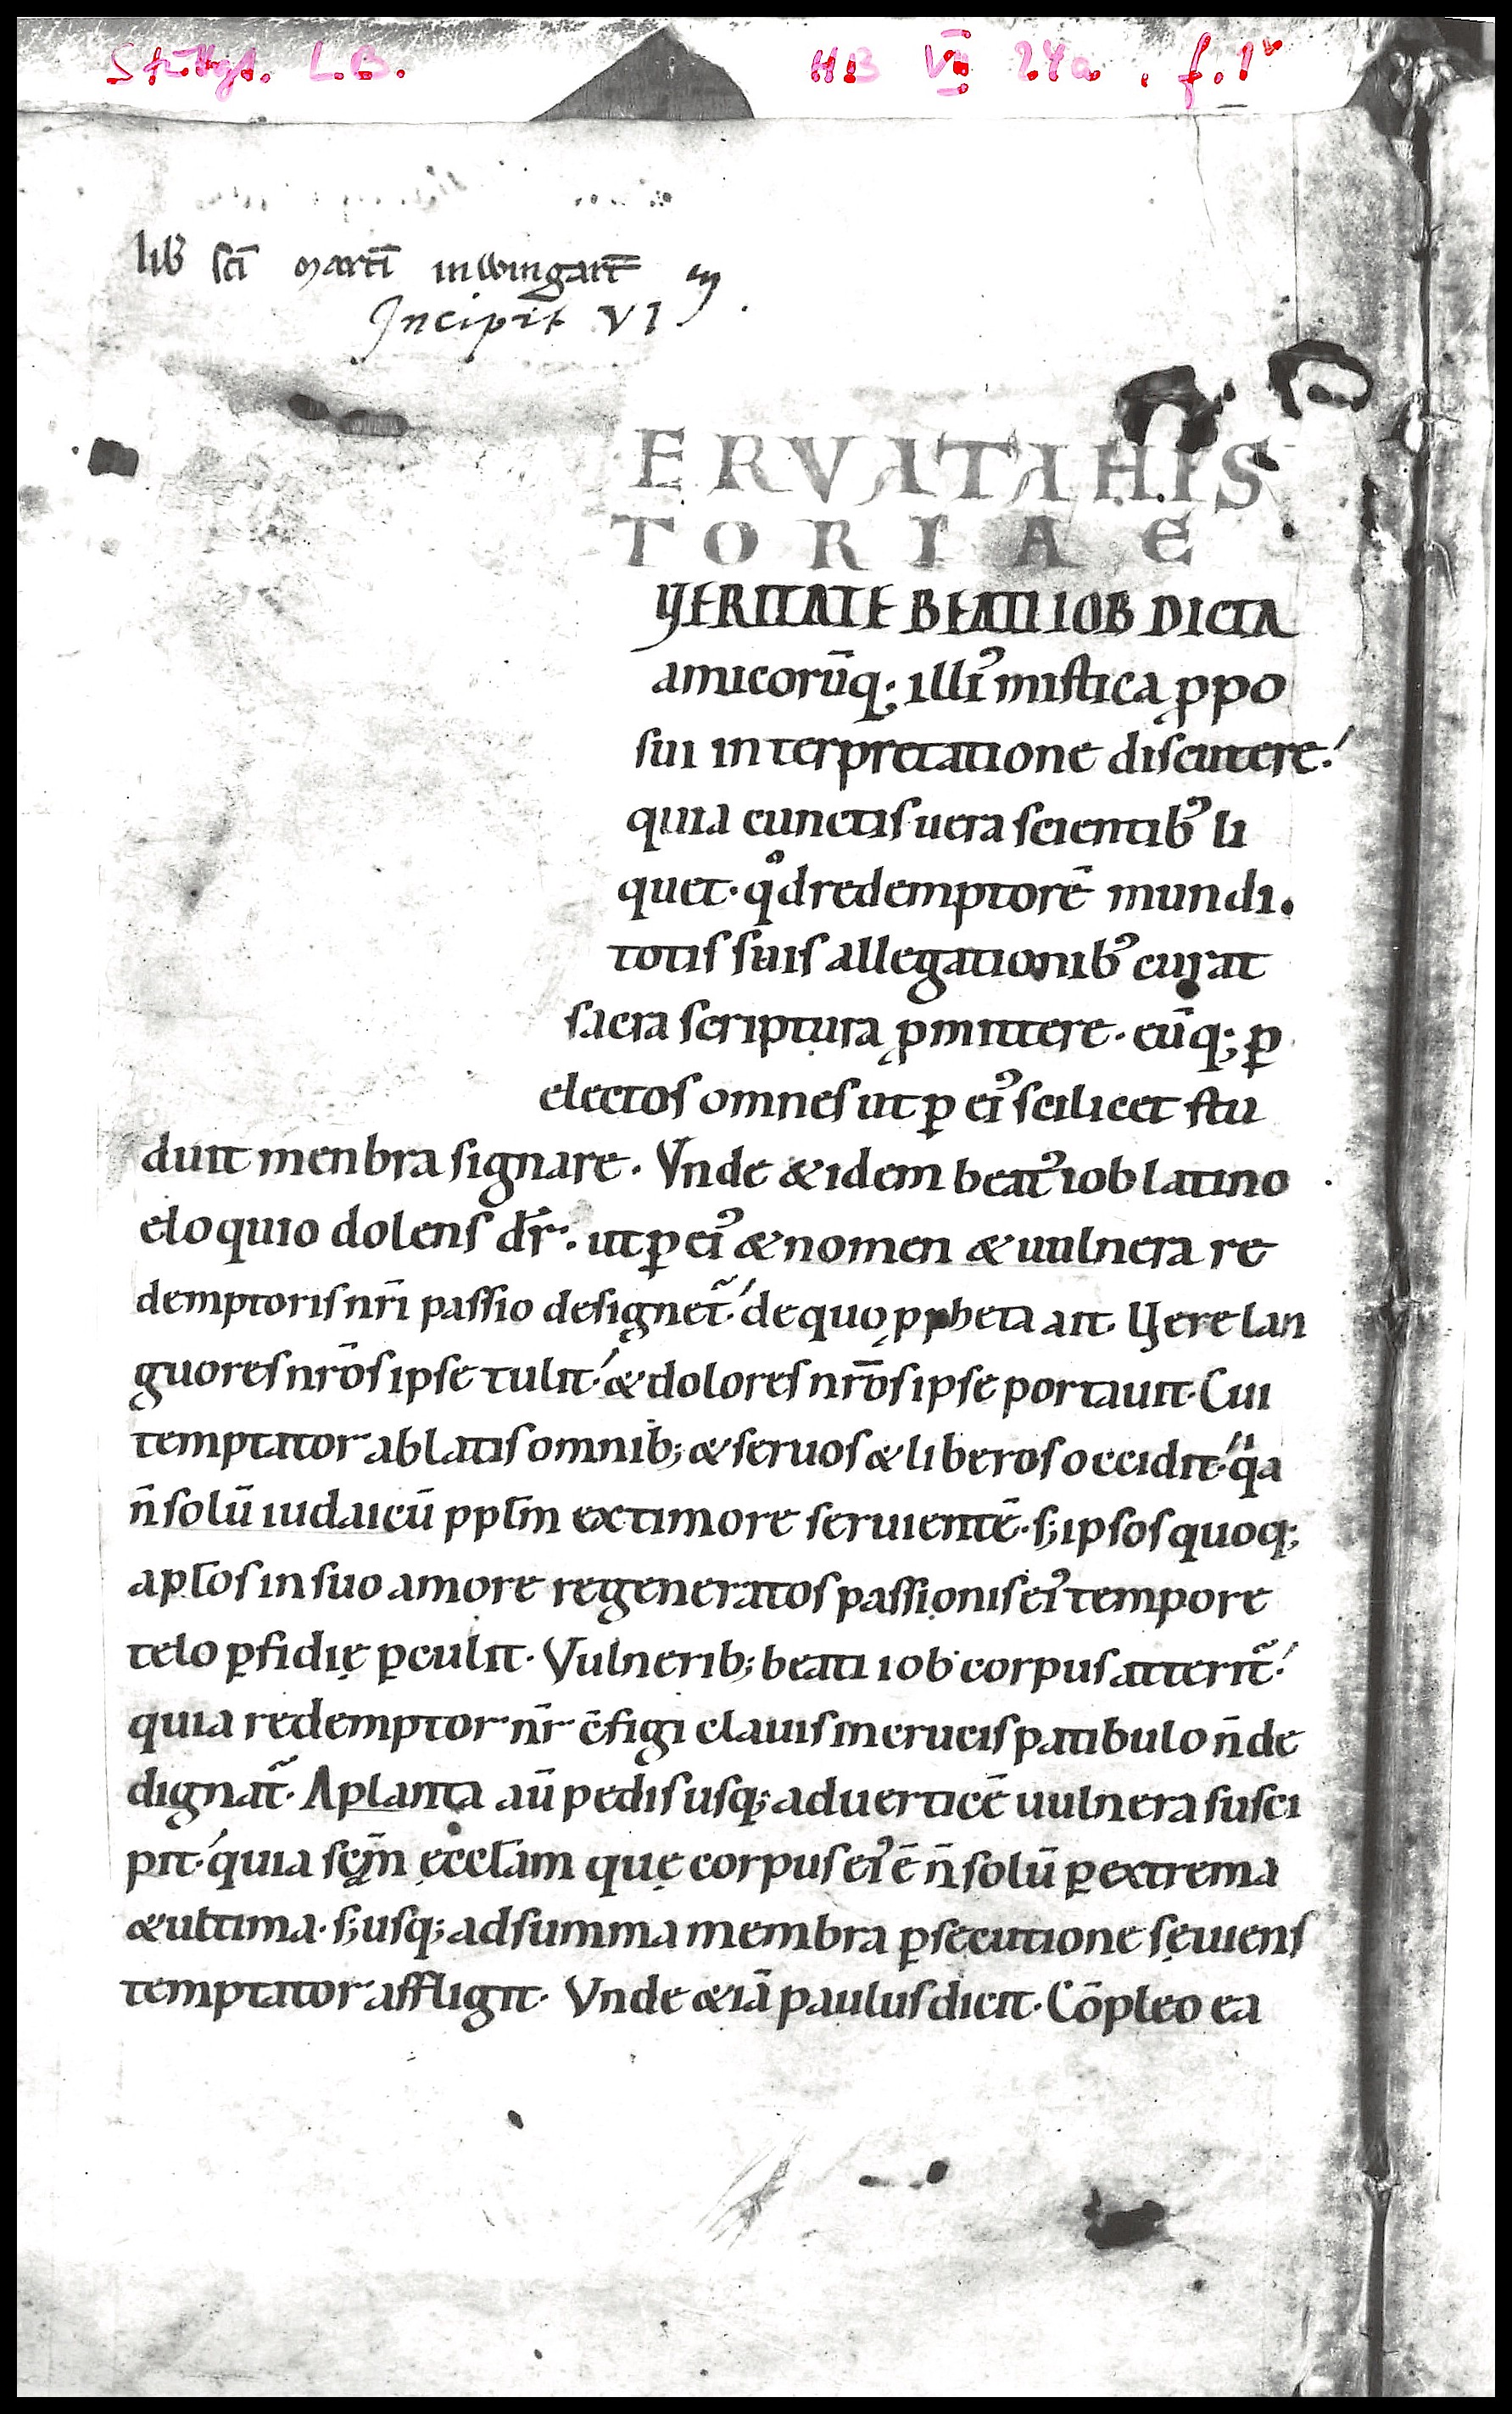 Stuttgt. L.B. HB VII 24a . f. 1ʳ
lib̄ sc̄i martī inwingart̄
Incipit VI
ERVATA HIS
TORIAE
VERITATE BEATI IOB DICTA
amicorūq; illiꝰ mistica ꝓpo
sui interpretatione discutere.
quia cunctis uera scientibꝰ li
quet. qͦd redemptorē mundi.
totis suis allegationibꝰ curat
sacra scriptura ꝓmittere. cūq; ꝑ
electos omnes ut ꝑ eiꝰ scilicet stu
duit menbra signare. Vnde & idem beatꝰ iob latino
eloquio dolens dr̄. ut ꝑ eiꝰ & nomen & uulnera re
demptoris nr̄i passio designet᷑. de quo ꝓpheta ait. Vere lan
guores nr̄os ipse tulit. & dolores nr̄os ipse portauit. Cui
temptator ablatis omnib; & seruos & liberos occidit. qͥa
n̄ solū iudaicū ppl̄m ex timore seruientē. s; ipsos quoq;
apl̄os in suo amore regeneratos passionis eiꝰ tempore
telo ꝑfidię ꝑculit. Vulnerib; beati iob corpus atterit᷑.
quia redemptor nr̄ c̄figi clauis in crucis patibulo n̄ de
dignat᷑. A planta aū pedis usq; ad uerticē uulnera susci
pit. quia sc̄m ęccl̄am quę corpus eiꝰ ē n̄ solū ꝑ extrema
& ultima. s; usq; ad summa membra ꝑsecutione sęuiens
temptator affligit. Vnde & iā paulus dicit. Cōpleo ea